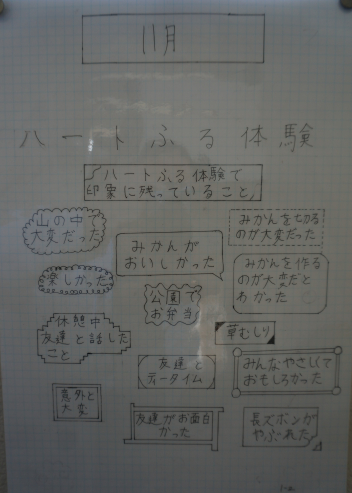 11月
ハートふる体験
ハートふる体験で
印象に残っていること
山の中で
大変だった
みかんを切る
のが大変だった
みかんが
おいしかった
楽しかった
みかんを作る
のが大変だと
わかった
公園で
お弁当
休憩中
友達と話した
こと
草むしり
友達と
ティータイム
みんなやさしくて
おもしろかった
意外と
大変
友達がお面白
かった
長ズボンが
やぶれた